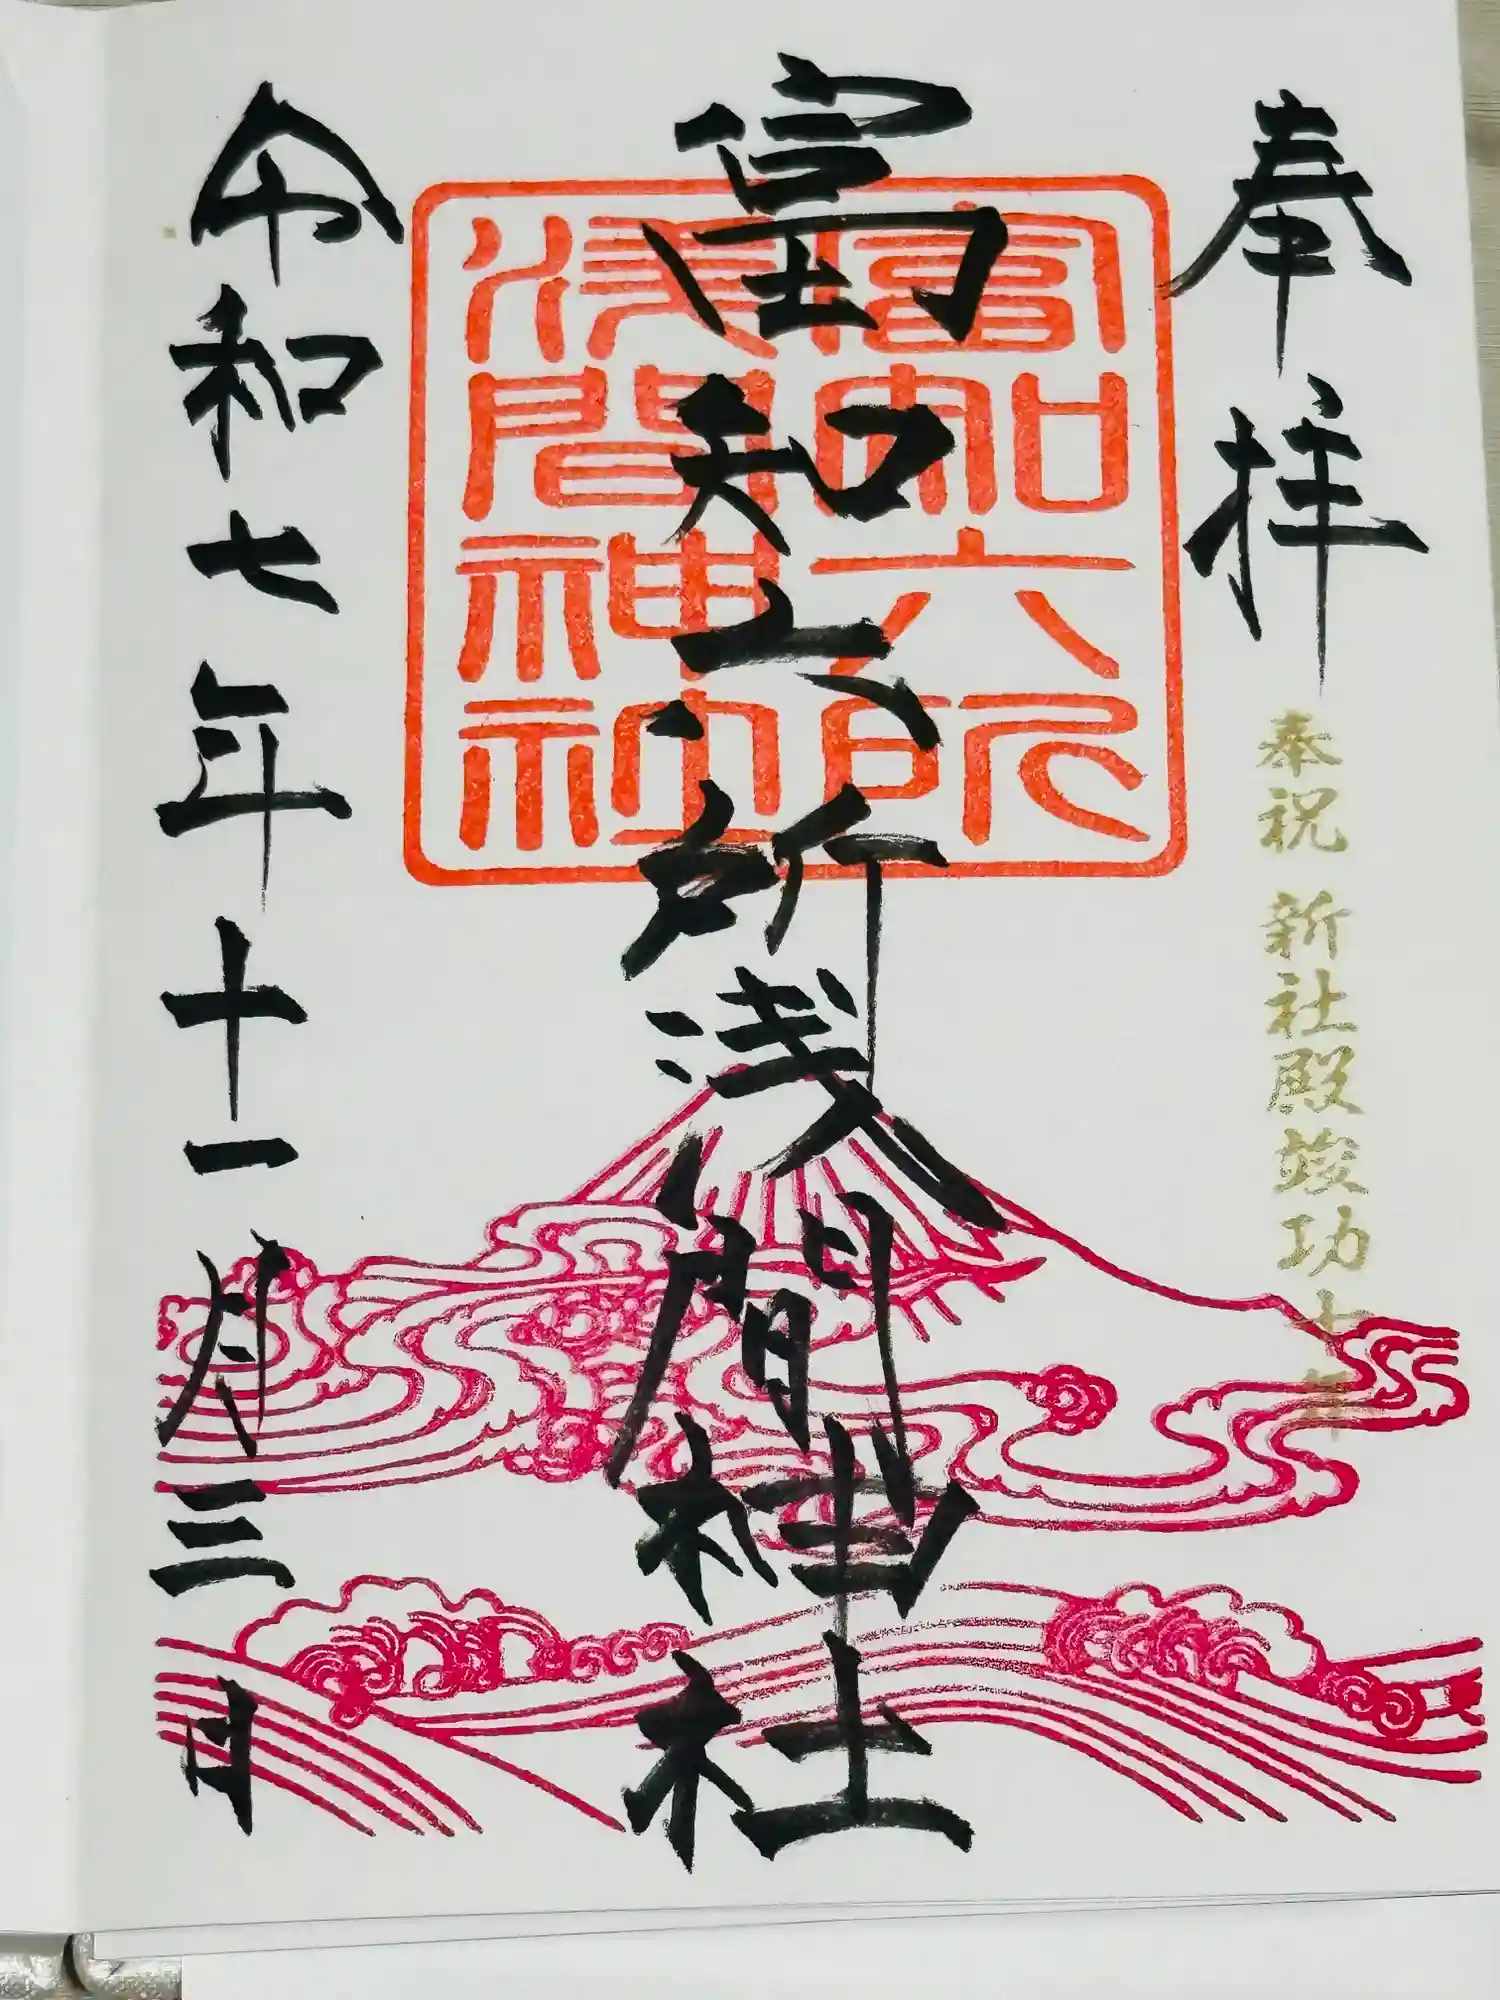 奉拝
奉祝 新社殿竣功十年
富知六所浅間神社
富知六所
淺間神社
令和七年十一月三日